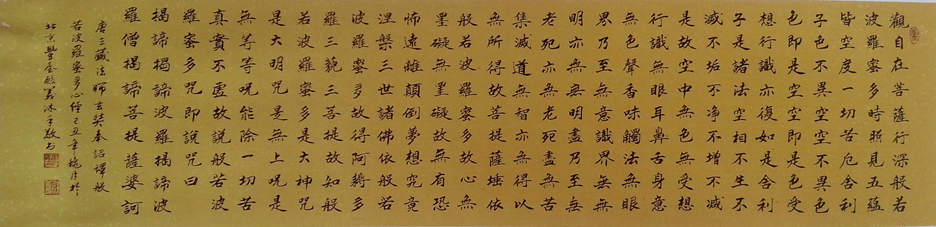 觀自在菩薩行深般若
波羅蜜多時照見五蘊
皆空度一切苦厄舍利
子色不異空空不異色
色即是空空即是色受
想行識亦復如是舍利
子是諸法空相不生不
滅不垢不淨不增不減
是故空中無色無受想
行識無眼耳鼻舌身意
無色聲香味觸法無眼
界乃至無意識界無無
明亦無無明盡乃至無
老死亦無老死盡無苦
集滅道無智亦無得以
無所得故菩提薩埵依
般若波羅蜜多故心無
罣礙無罣礙故無有恐
怖遠離顛倒夢想究竟
涅槃三世諸佛依般若
波羅蜜多故得阿耨多
羅三藐三菩提故知般
若波羅蜜多是大神咒
是大明咒是無上咒是
無等等呪能除一切苦
真實不虛故說般若波
羅蜜多咒即說咒曰
揭諦揭諦波羅揭諦波
羅僧揭諦菩提薩婆訶
唐三藏法師玄奘奉詔譯般
若波羅蜜多心經己丑年於
北京